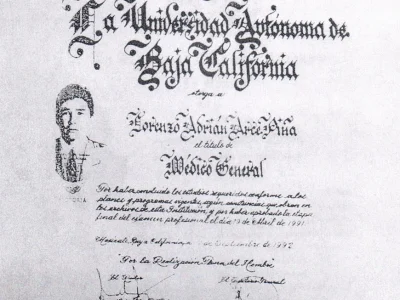 La Universidad Autónoma de
Baja California
otorga a
Lorenzo Adrián Arce Piña
el título de
Médico General
Por haber concluido los estudios requeridos conforme a los
planes y programas vigentes, según constancias que obran en
los archivos de esta Institución, y por haber aprobado la etapa
final del examen profesional el día 19 de Abril de 1991
Mexicali, Baja California, de 1992
Por la Realización Plena del Hombre
El Rector
El Secretario General